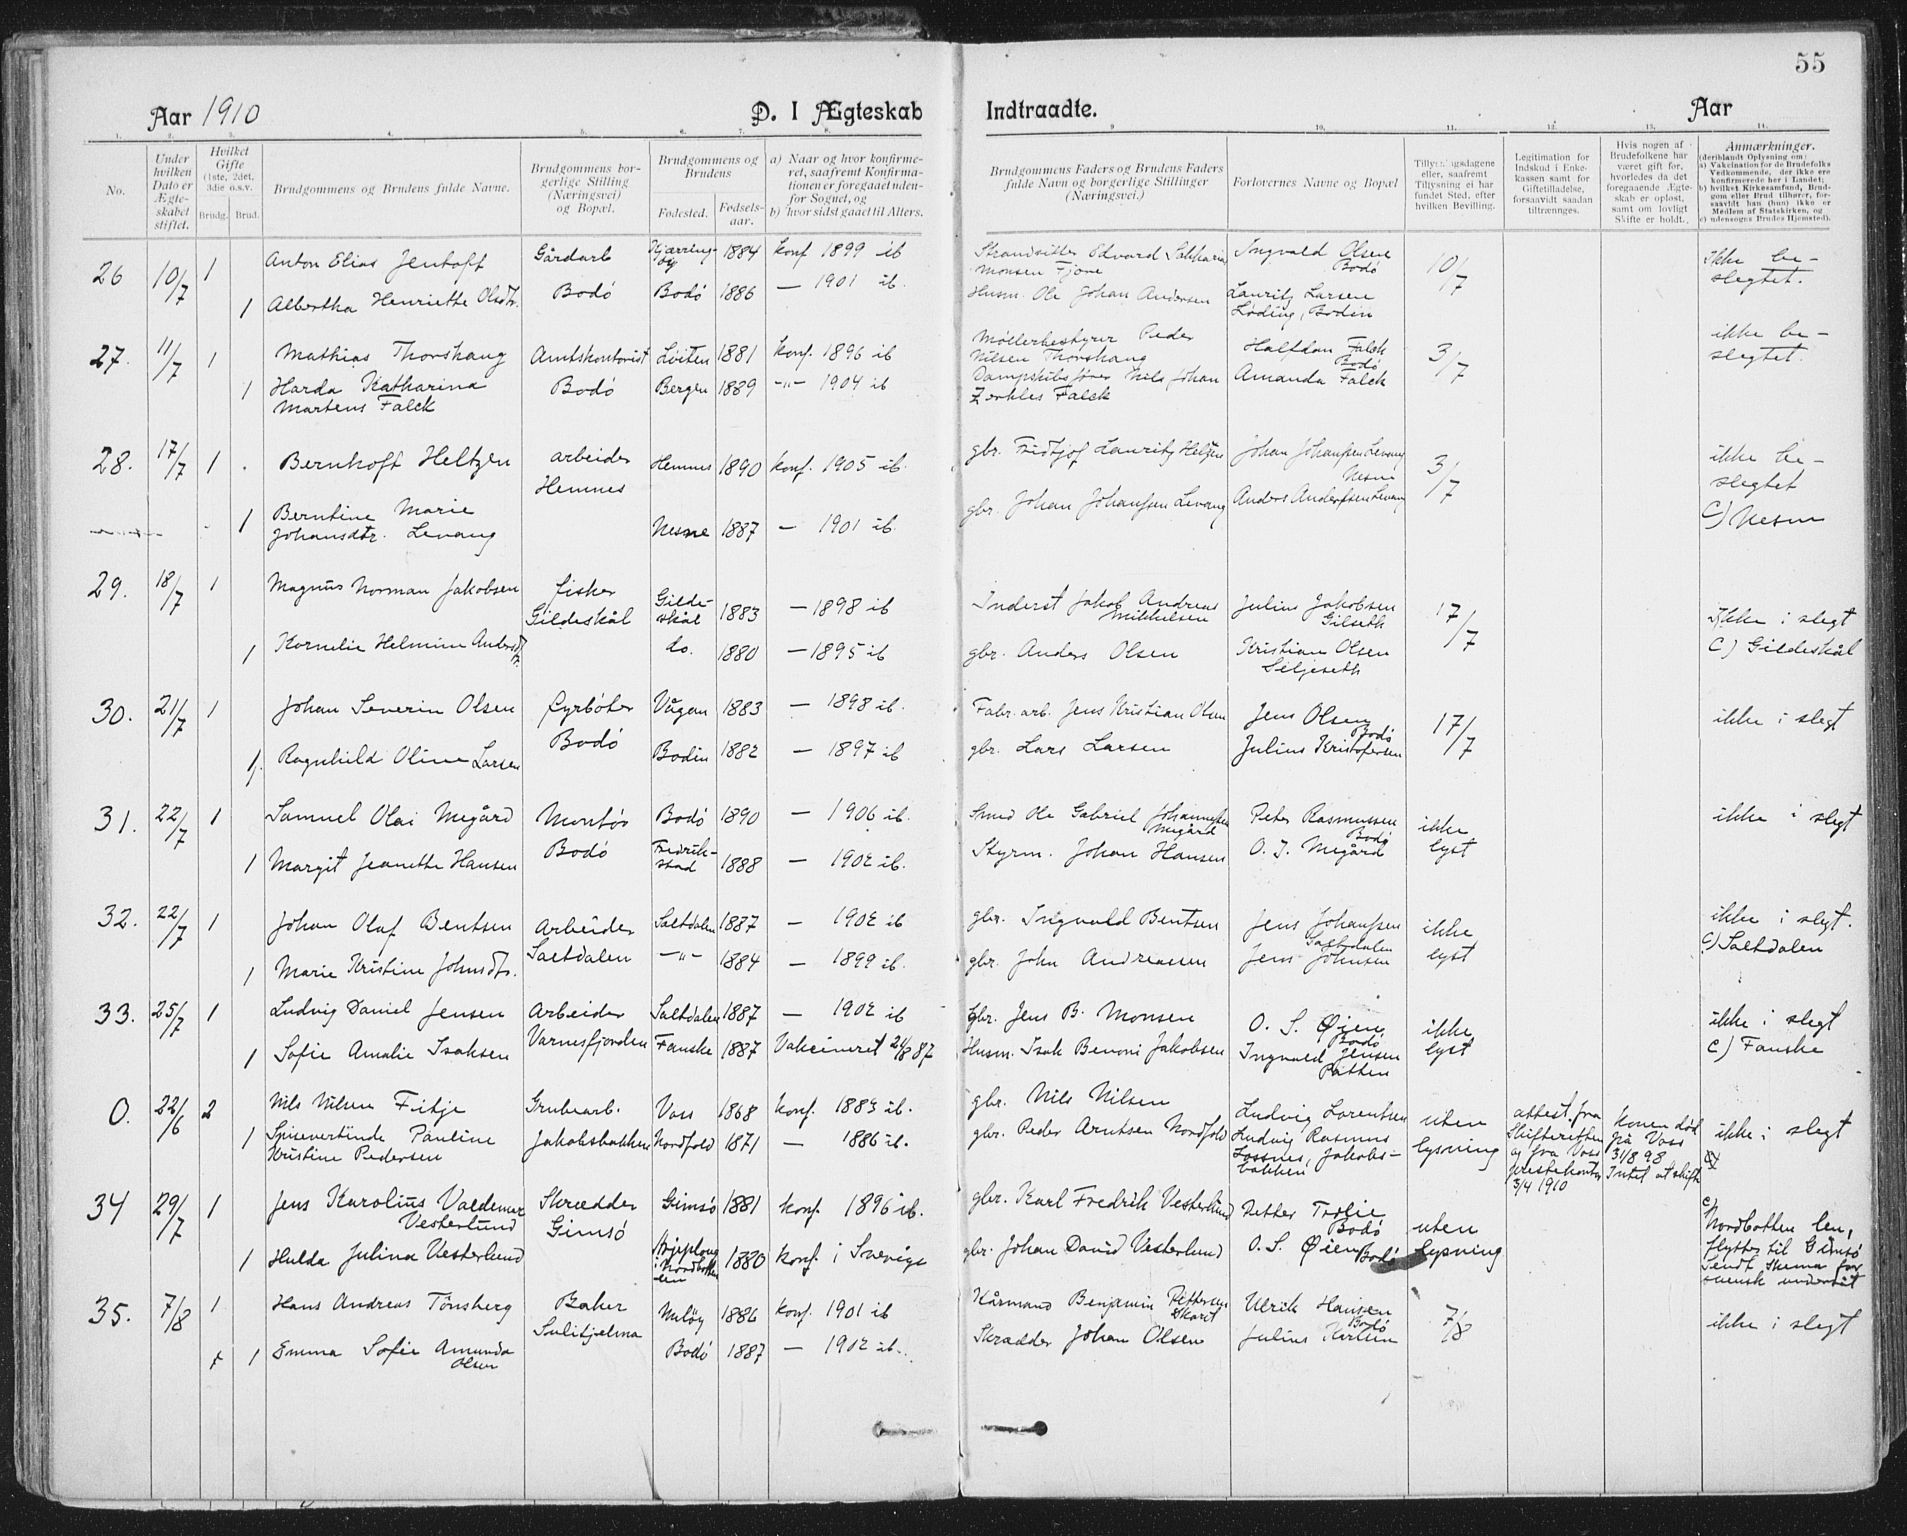 55
Aar 1910
D. I Ægteskab
Indtraadte.
Aar
1. 2. 3. 4. 5. 6. 7. 8. 9 10. 11. 12. 13. 14.
No.
Under hvilken Dato er Ægteskabet stiftet.
Hvilket Gifte (1ste, 2det, 3die o.s.v.
Brudg. Brud.
Brudgommens og Brudens fulde Navne.
Brudgommens borgerlige Stilling (Næringsvei) og Bopæl.
Brudgommens og Brudens
Fødested. Fødselsaar.
a) Naar og hvor konfirmeret, saafremt Konfirmationen er foregaaet udenfor Sognet, og
b) hvor sidst gaaet til Alters.
Brudgommens Faders og Brudens Faders fulde Navn og borgerlige Stillinger (Næringsvei.)
Forlovernes Navne og Bopæl
eller, saafremt Tillysning ei har fundet Sted, efter hvilken Bevilling.
Legitimation for Indskud i Enkekassen samt for Giftetilladelse, forsaavidt saadan tiltrænges.
Hvis nogen af Brudefolkene har været gift før, hvorledes da det foregaaende Ægteskab er opløst, samt om lovligt Skifte er holdt.
Anmærkninger.
(deriblandt Oplysning om:
a) Vakcination for Brudefolks Vedkommende, der ikke ere konfirmerede her i Landet;
b) hvilket Kirkesamfund, Brudgom eller Brud tilhører, forsaavidt han (hun) ikke er Medlem af Statskirken, og
c) udensogns Brudes Hjemsted).
26 10/7 1 Anton Elias Jentoft Gårdarb Kjærringøy 1884 konf 1899 ib Strandsitter Edvard Monsen Fjove Ingvald Olsen Bodö 10/7 Ikke beslegtet.
1 Albertha Henriette Olsdtr. Bodö Bodö 1886 — 1901 ib. Husm. Ole Johan Andersen Lauritz Larsen Löding, Bodin
27. 11/7 1 Mathias Thorshaug Amtskontorist Löiten 1881 konf. 1896 ib Möllerbestyrer Peder Nilsen Thorshaug Halfdan Falck Bodö 3/7 ikke beslegtet.
1 Harda Katharina Martens Falck Bodö Bergen 1889 -"- 1904 ib Dampskibsförer Nils Johan Falck Amanda Falck
28. 17/7 1 Bernhoft Heltzen arbeider Hemnes Hemnes 1890 konf. 1905 ib. gbr. Fridtjof Lauritz Heltzen Johan Johanssen Levang Nesne 3/7 ikke beslegtet
1 Berntine Marie Johansdtr. Levang Nesne 1887 — 1901 ib. gbr. Johan Johanssen Levang Anders Anderssen Levang C) Nesne
29. 18/7 1 Magnus Norman Jakobsen fisker Gildeskål Gildeskål 1883 — 1898 ib Inderst Jakob Andreas Mikkelsen Julius Jakobsen Gilseth 17/7 Ikke i slegt
1 Kornelie Helmine Andersdtr. do. 1880 — 1895 ib gbr. Anders Olsen Kristian Olsen Seljeseth C) Gildeskål
30. 21/7 1 Johan Severin Olsen fyrböter Vågan 1883 — 1898 ib. Fabr. arb. Jens Kristian Olsen Jens Olsen Bodö 17/7 ikke i slegt
1. Ragnhild Oline Larsen Bodö Bodin 1882 — 1897 ib gbr. Lars Larsen Julius Kristofersen
31. 22/7 1 Samuel Olai Megård Montör Bodö 1890 — 1906 ib. Smed Ole Gabriel Johannessen Megård Peter Rasmussen Bodö ikke lyst ikke i slegt
1 Margit Jeanette Hansen Bodö Fredrikstad 1888 — 1902 ib. Styrm. Johan Hansen O. J. Megård
32. 22/7 1 Johan Olaf Bentsen Arbeider Saltdalen 1887 — 1902 ib gbr. Ingvald Bentsen Jens Johanssen Saltdalen ikke lyst ikke i slegt.
1 Marie Kristine Johnsdtr. Saltdalen -"- 1884 — 1899 ib. gbr. John Andreassen Jens Johnsen C) Saltdalen
33. 25/7 1 Ludvig Daniel Jensen Arbeider Saltdalen 1887 — 1902 ib gbr. Jens B. Monsen O. S. Øien Bodö ikke lyst ikke i slegt
1 Sofie Amalie Isaksen Varnesfjorden Fauske 1887 Vakcineret 24/8 87 Husm. Isak Benoni Jakobsen Ingvald Jensen C) Fauske
0. 22/6 2 Nils Nilsen Fitje Grubearb. Voss 1868 konf. 1883 ib. gbr. Nils Nilsen Ludvig Lorentsen uten lysning attest. fra Skifteretten og fra Voss 3/4 1910 konen död på Voss 31/8 98 Intet at skifte ikke i slegt
1 Pauline Kristine Pedersen Jakobsbakken Nordfold 1871 — 1886 ib. gbr. Peder Arntsen Nordfold Ludvig Rasmus Jakobsbakken
34 29/7 1 Jens Karolius Valdemar Vesterlund Skrædder Gimsö Gimsö 1881 konf. 1896 ib. gbr. Karl Fredrik Vesterlund Petter Bodö uten lysning
1 Hulda Julina Vesterlund Arjeploug i Nordbotten len 1880 konf. i Sverige gbr. Johan David Vesterlund O. S. Øien Bodö c) Nordbotten len, flytter til Gimsö Sendt Skema for svensk undersåt
35. 7/8 1 Hans Andreas Tönsberg Baker Sulitjelma Melöy 1886 konf. 1901 ib Benjamin Pettersen Ulrik Hansen Bodö 7/8 ikke i slegt
1 Emma Sofie Amanda Olsen Bodö 1887 — 1902 ib. Skrædder Johan Olsen Julius